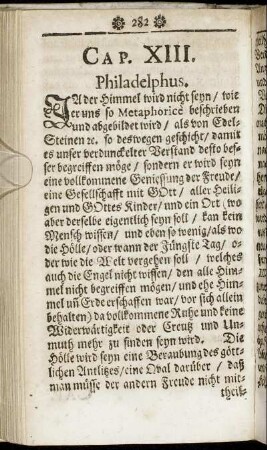 282
CAP. XIII.
Philadelphus.
JA der Himmel wird nicht seyn / wie
er uns so Metaphoricè beschrieben
und abgebildet wird / als von Edel-
Steinen ꝛc. so deswegen geschicht / damit
es unser verdunckelter Verstand desto bes-
ser begreiffen möge / sondern er wird seyn
eine vollkommene Geniessung der Freude /
eine Gesellschafft mit GOtt / aller Heili-
gen und GOttes Kinder / und ein Ort / wo
aber derselbe eigentlich seyn soll / kan kein
Mensch wissen / und eben so wenig / als wo
die Hölle / oder wann der Jüngste Tag / o-
der wie die Welt vergehen soll / welches
auch die Engel nicht wissen / den alle Him-
mel nicht begreiffen mögen / und ehe Him-
mel uñ Erde erschaffen war / vor sich allein
behalten) da vollkommene Ruhe und keine
Widerwärtigkeit oder Creutz und Un-
muth mehr zu finden seyn wird. Die
Hölle wird seyn eine Beraubung des gött-
lichen Antlitzes / eine Qval darüber / daß
man müsse der andern Freude nicht mit-
theil-